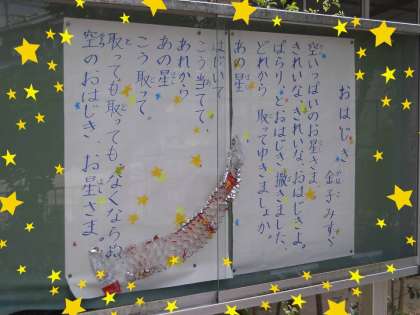 おはじき
金子みすゞ
空いっぱいのお星さま、
きれいな、きれいな、おはじきよ。
ぱらり、とおはじき、撒きました、
どれから、取ってゆきましょか。
あの星
はじいて
こう当てて、
あれから
あの星
こう取って。
取っても取ってもなくならぬ
空のおはじき、お星さま。